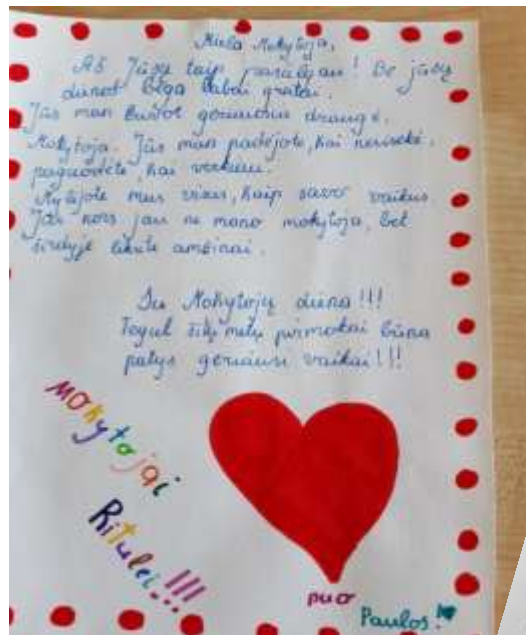 Miela Mokytoja,
Aš Jūsų taip pasiilgau! Be jūsų
dienos bėga labai greitai.
Jūs man buvot geriausia draugė.
Mokytoja. Jūs man padėjote, kai nesisekė,
paguodėte, kai verkiau.
Mylėjote mus visus, kaip savo vaikus.
Jūs nors jau ne mano mokytoja, bet
širdyje likite amžinai.
Su Mokytojų diena!!!
Tegul šių metų pirmokai būna
patys geriausi vaikai!!!
Mokytojai
Ritulei!!!
nuo
Paulos!